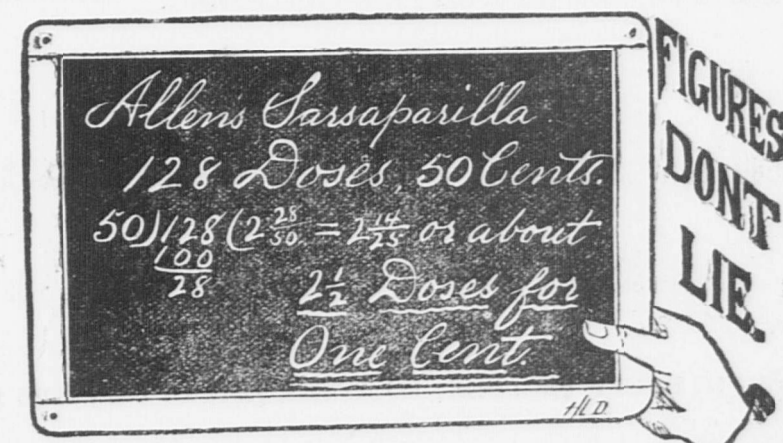 Allens Sarsaparilla
128 Doses, 50 Cents.
50)128(2 28/50 = 2 14/25 or about
100
28
2 1/2 Doses for
One Cent.
H.L.D.
FIGURES
DONT
LIE.